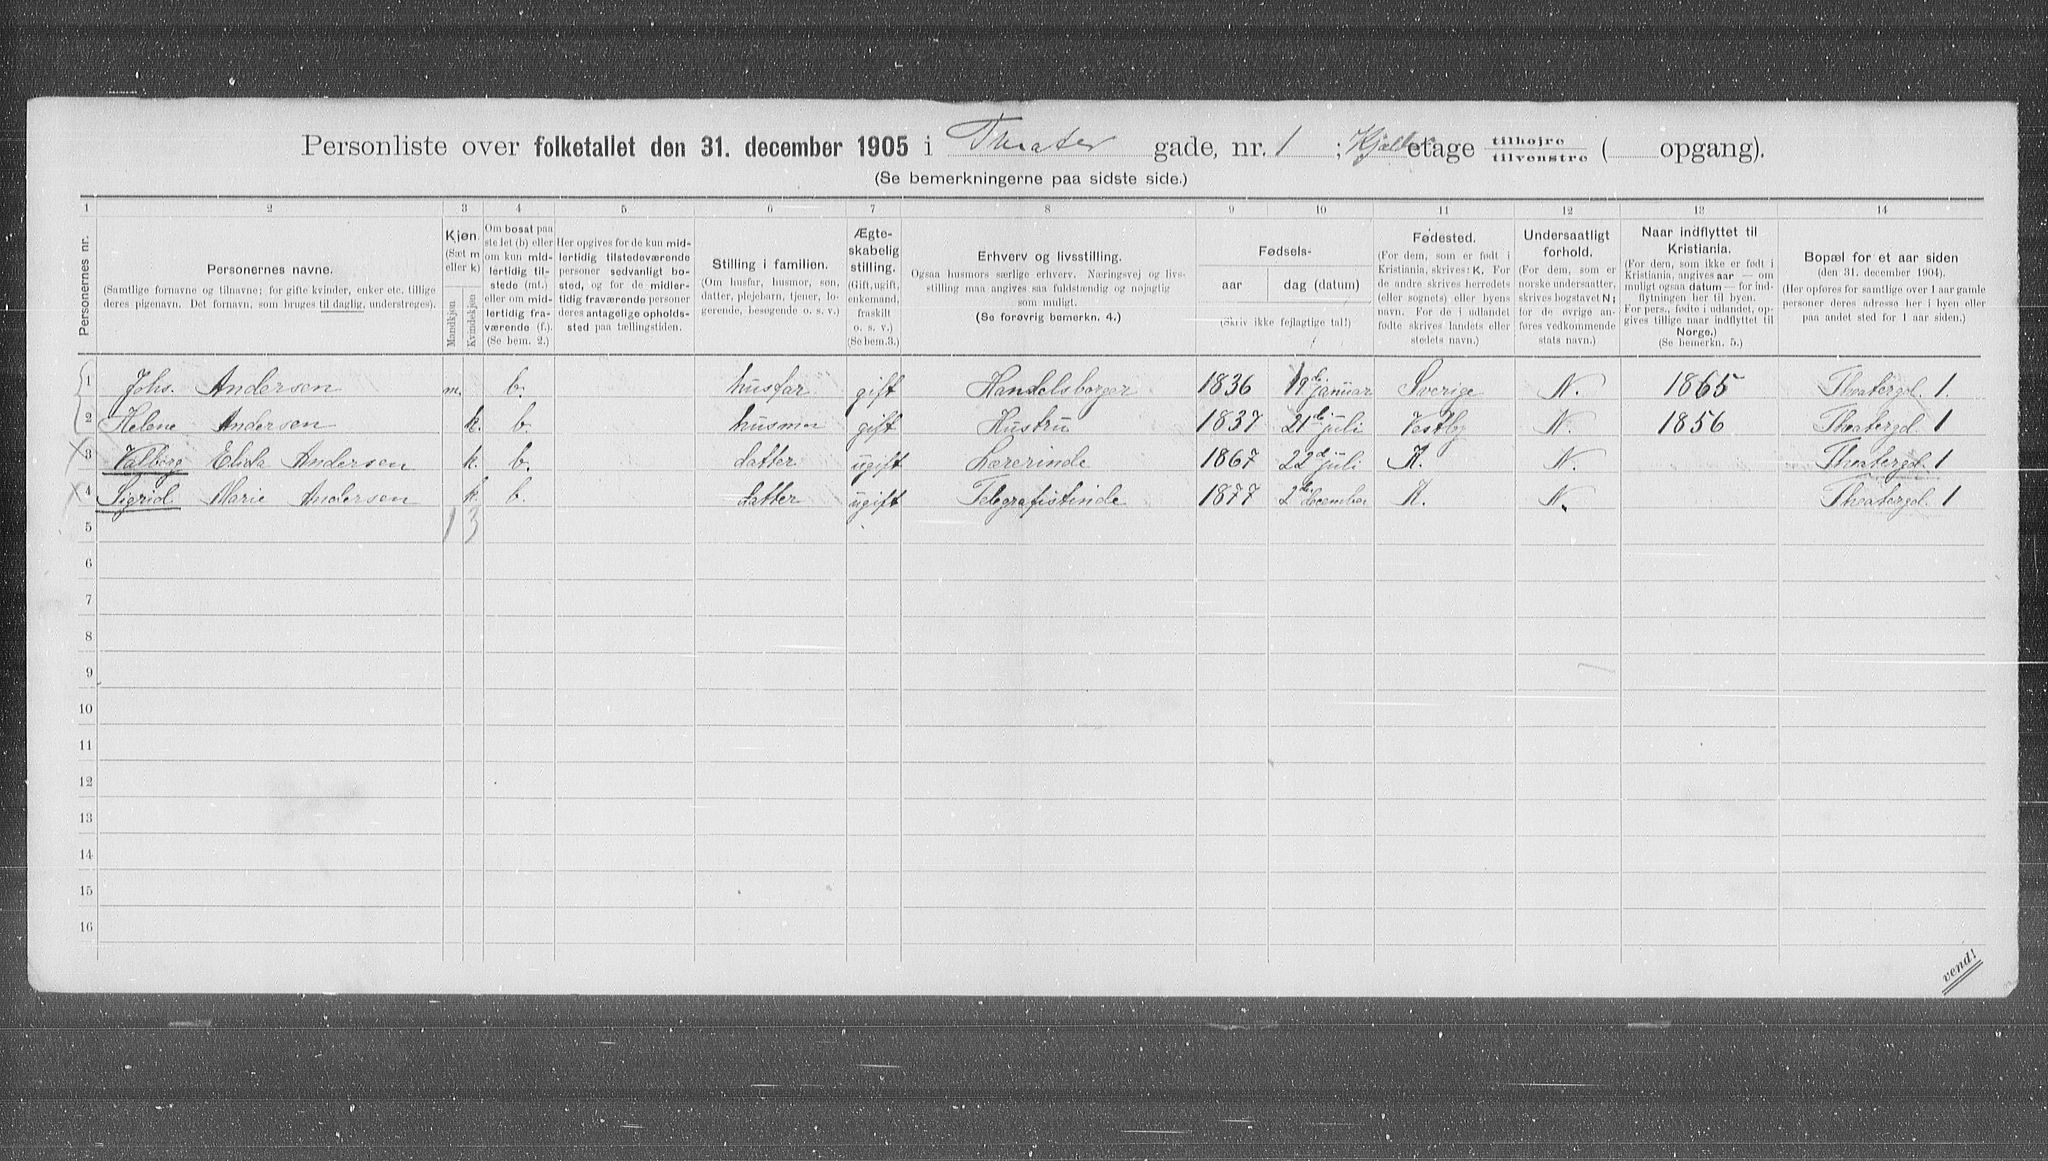 Personliste over folketallet den 31. december 1905 i Theater gade, nr. 1 ; Kjelder etage tilhøjre tilvenstre ( opgang).
(Se bemerkningerne paa sidste side.)
1 2 3 4 5 6 7 8 9 10 11 12 13 14
Personernes nr.
Personernes navne.
(Samtlige fornavne og tilnavne; for gifte kvinder, enker etc. tillige
deres pigenavn. Det fornavn, som bruges til daglig, understreges).
Kjøn.
(Sæt m
eller k)
Mandkjøn
Kvindekjøn
Om bosat paa
stedet (b) eller
om kun mid-
lertidig til-
stede (mt.)
eller om mid-
lertidig fra-
værende (f.).
(Se bem. 2.)
Her opgives for de kun mid-
lertidig tilstedeværende
personer sedvanligt bo-
sted, og for de midler-
tidig fraværende personer
deres antagelige opholds-
sted paa tællingstiden.
Stilling i familien.
(Om husfar, husmor, søn,
datter, plejebarn, tjener, lo-
gerende, besøgende o. s. v.)
Ægte-
skabelig
stilling.
(Gift, ugift,
enkemand,
fraskilt
o. s. v.)
(Se bem. 3.)
Erhverv og livsstilling.
Ogsaa husmors særlige erhverv. Næringsvej og livs-
stilling maa angives saa fuldstændig og nøjagtig
som muligt.
(Se forøvrig bemerkn. 4.)
Fødsels-
aar
dag (datum)
(Skriv ikke fejlagtige tal!)
Fødested.
(For dem, som er født i
Kristiania, skrives: K. For
de andre skrives herredets
(eller sognets) eller byens
navn. For de i udlandet
fødte skrives landets eller
stedets navn.)
Undersaatligt
forhold.
(For dem, som er
norske undersaatter,
skrives bogstavet N;
for de øvrige an-
føres vedkommende
stats navn.)
Naar indflyttet til
Kristiania.
(For dem, som ikke er født i
Kristiania, angives aar — om
muligt ogsaa datum — for ind-
flytningen her til byen.
For pers., fødte i udlandet, op-
gives tillige naar indflyttet til
Norge.)
(Se bemerkn. 5.)
Bopæl for et aar siden
(den 31. december 1904).
(Her opføres for samtlige over 1 aar gamle
personer deres adresse her i byen eller
paa andet sted for 1 aar siden.)
1 Johs. Andersen m. b. husfar gift Handelsborger 1836 19de januar Sverige N. 1865 Theatergd. 1.
2 Helene Andersen k. b. husmor gift Hustru 1837 21de juli Vestby N. 1856 Theatergd. 1
3 Valborg Elida Andersen k. b. datter ugift Lærerinde 1867 22de juli K. N. Theatergd. 1
4 Sigrid Marie Andersen k. b. datter ugift Telegrafistinde 1877 2den december K. N. Theatergd. 1
5 1 3
6
7
8
9
10
11
12
13
14
15
16
vend!